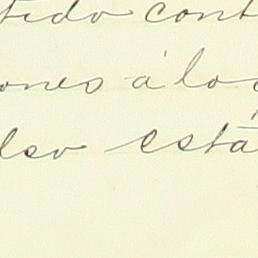 tido cont
ones á lo
lso está